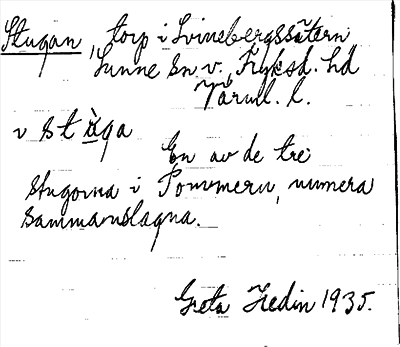 Stugan, torp i Svinsbergssätern
Sunne sn v., Fryksd. hd
Värml. l.
v stⱥ̀ga
En av de tre
stugorna i Pommern, numera
sammanslagna.
Greta Hedin 1935.